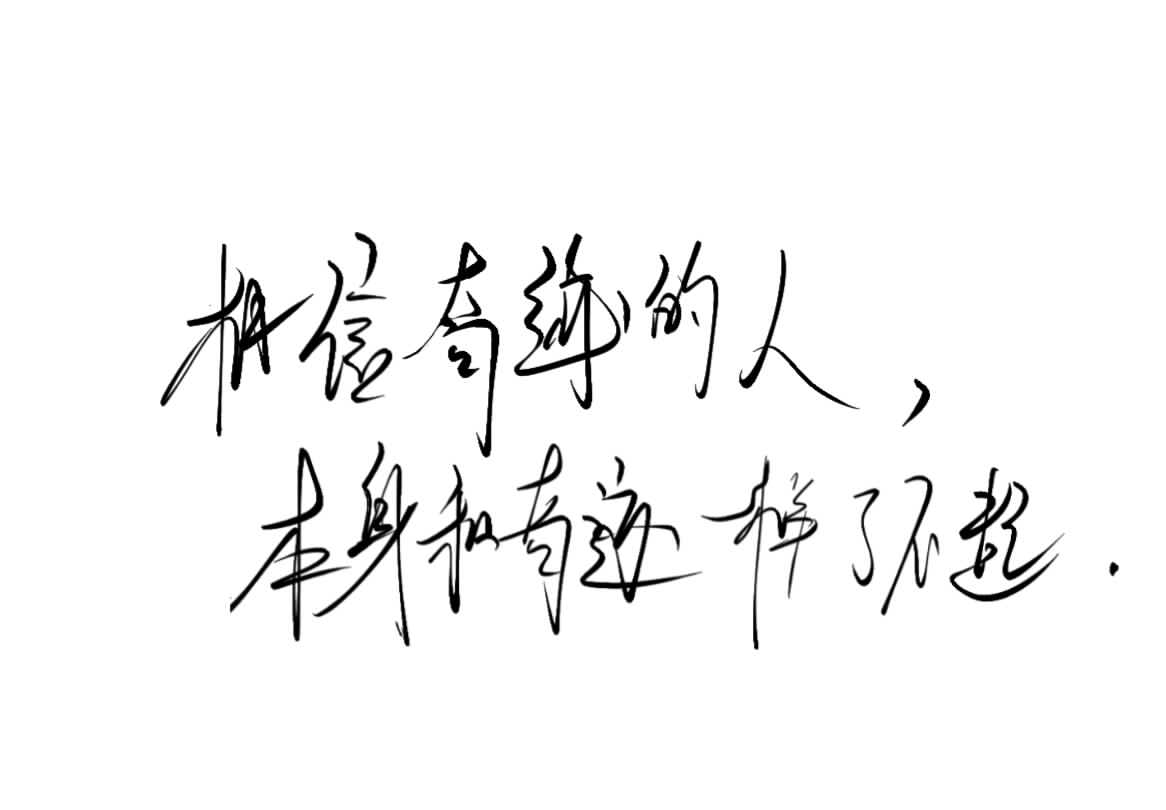 相信奇迹的人，
本身和奇迹一样了不起.